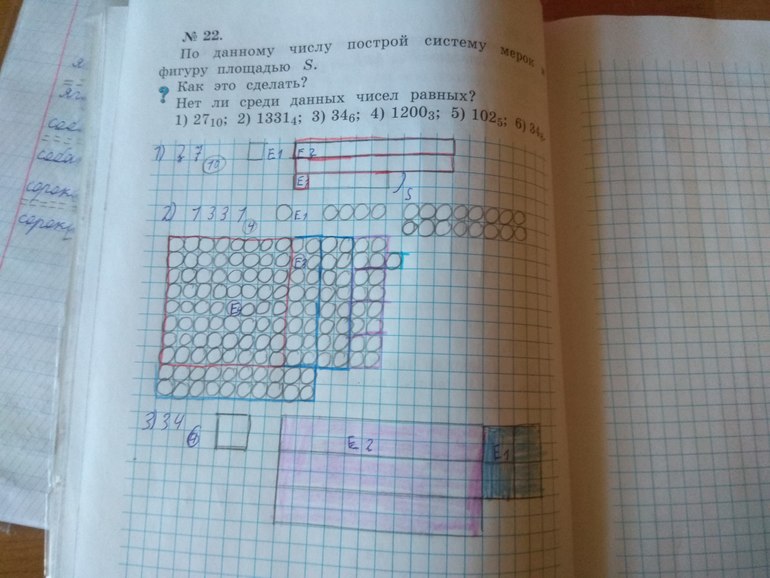 № 22.
По данному числу построй систему мерок и
фигуру площадью S.
? Как это сделать?
Нет ли среди данных чисел равных?
1) 27₁₀; 2) 1331₄; 3) 34₆; 4) 1200₃; 5) 102₅; 6) 34
1) 27 10 E1 E2
E1
S
2) 1331 4 E1
E2
E3
3) 34 6 E2 E1